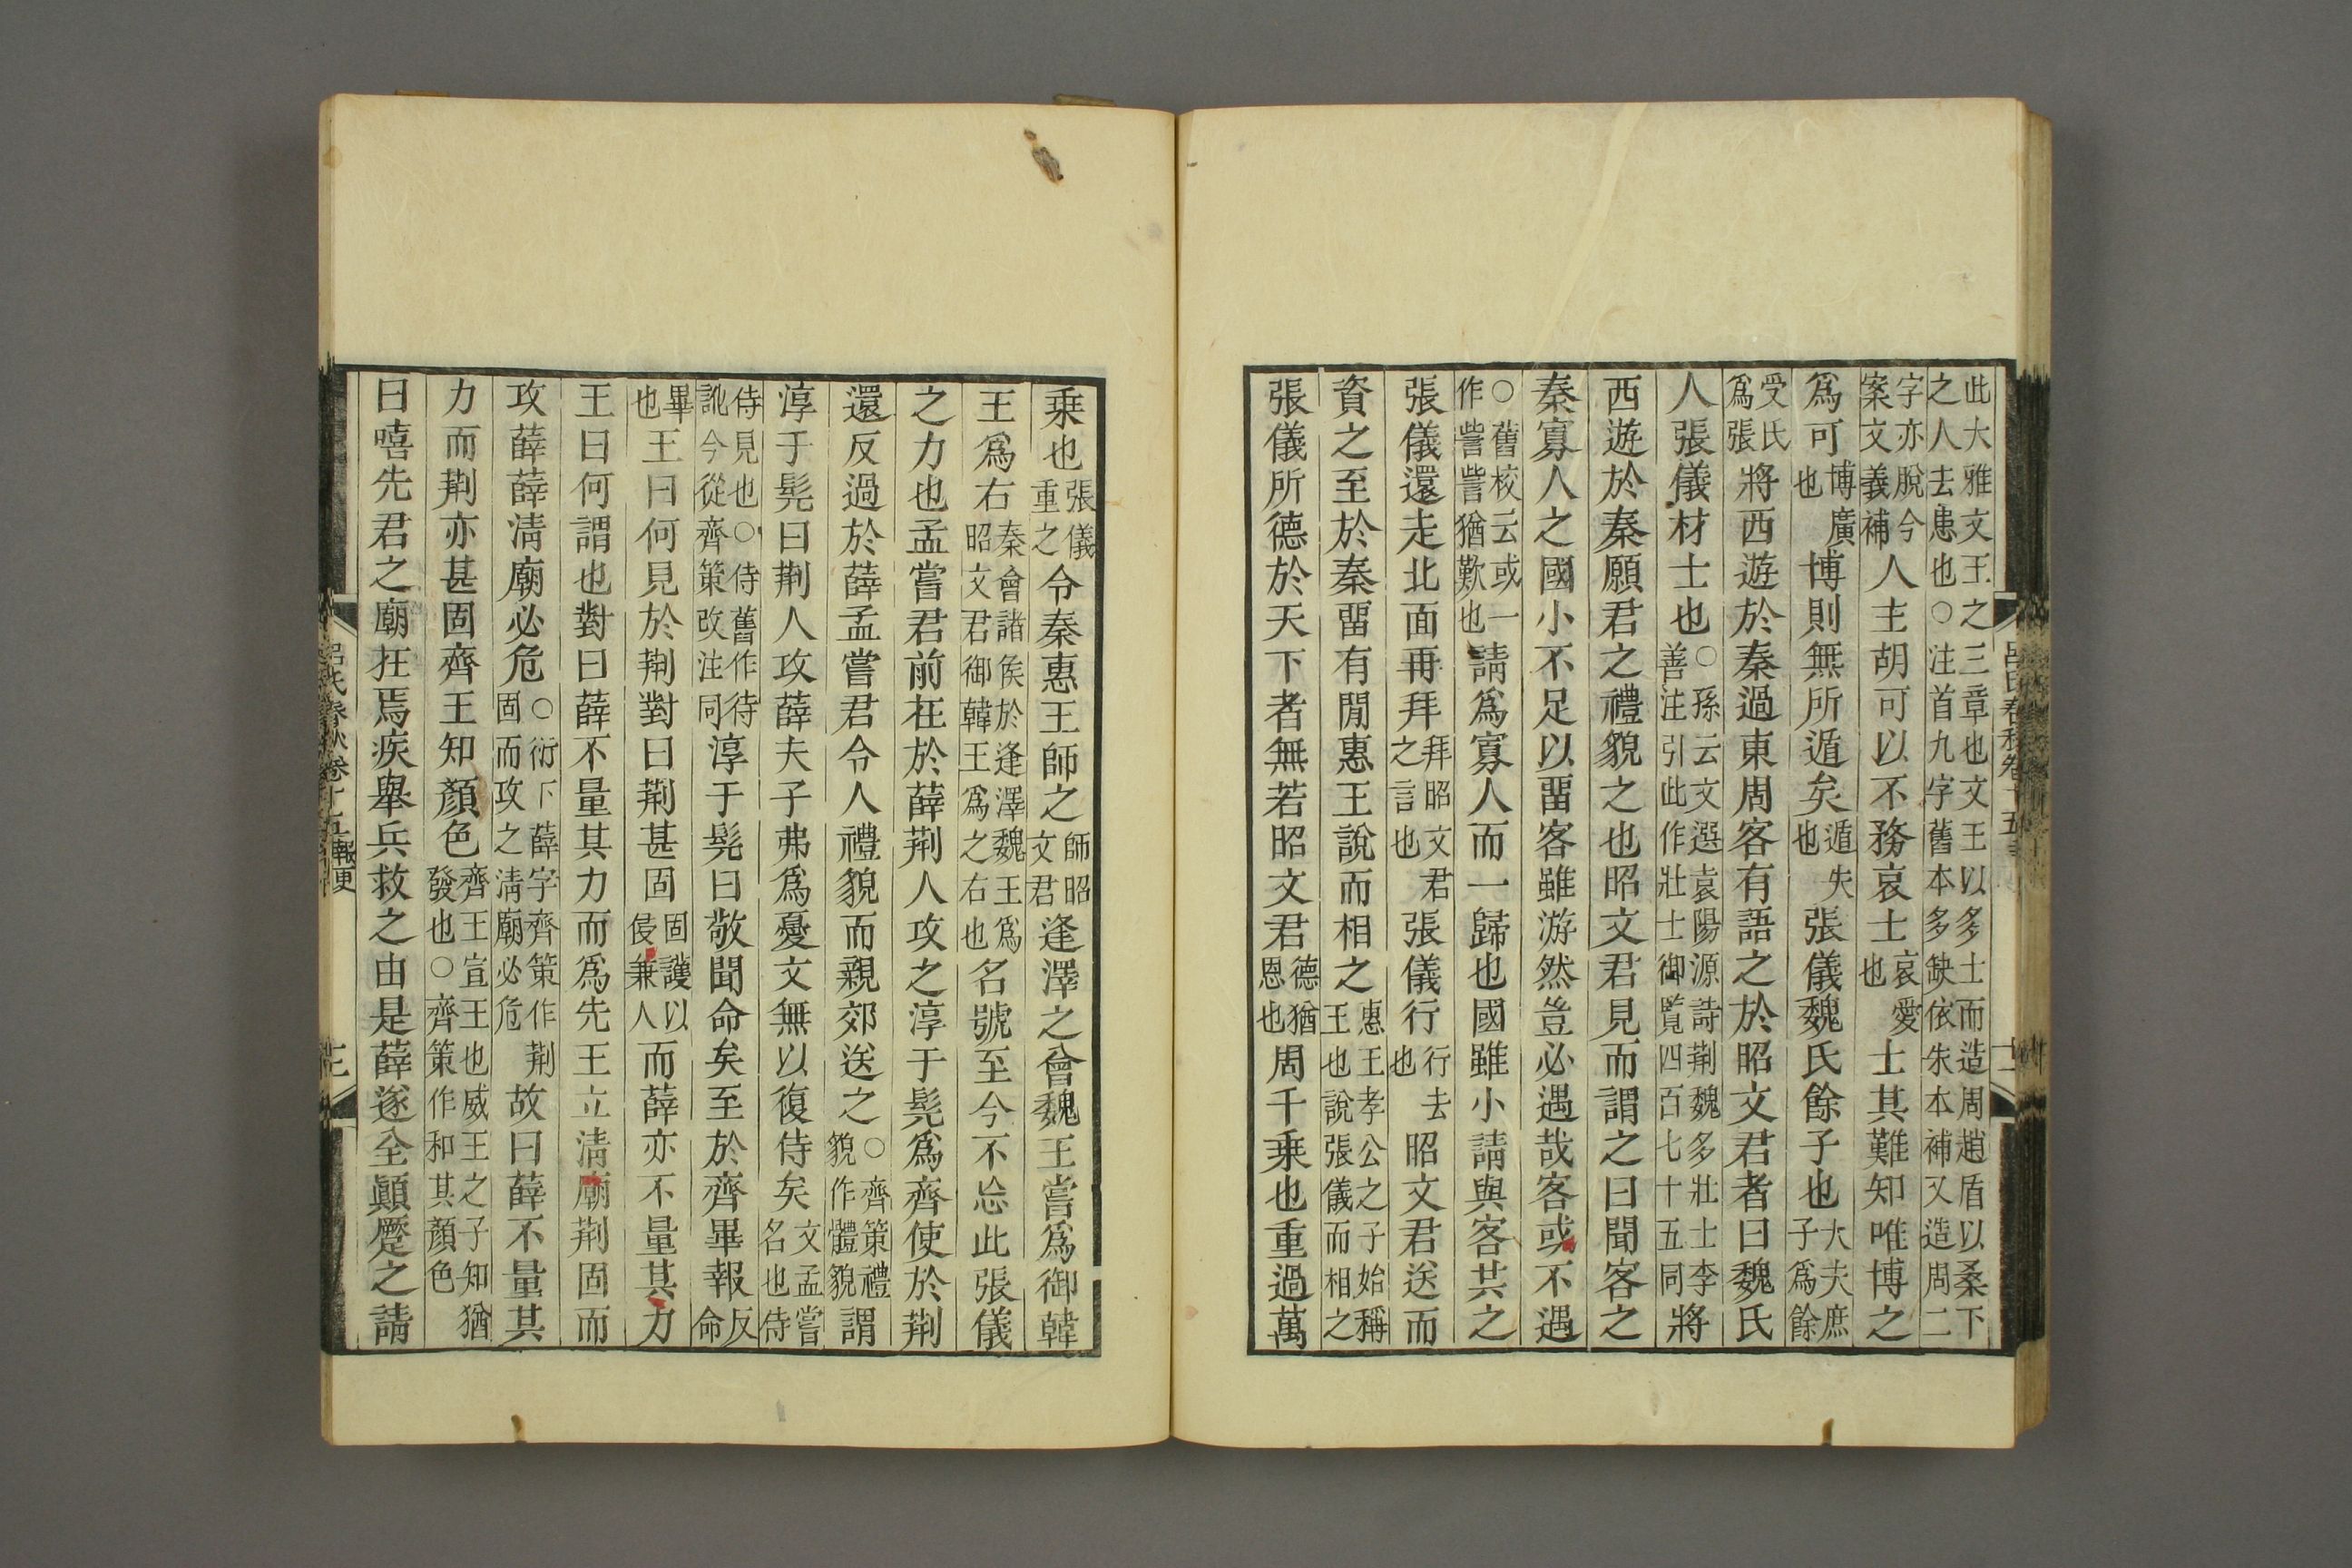 此大雅文王之三章也文王以多士而造周趙盾以桑下
之人去患也○注首九字舊本多缺依朱本補又造周二
字亦脫今
案文義補
人主胡可以不務哀士
哀愛
也
士其難知唯博之
爲可
博廣
也
博則無所遁矣
遁失
也
張儀魏氏餘子也
大夫庶
子爲餘
受氏
爲張
將西遊於秦過東周客有語之於昭文君者曰魏氏
人張儀材士也
○孫云文選袁陽源詩荆魏多壯士李
善注引此作壯士御覽四百七十五同
將
西遊於秦願君之禮貌之也昭文君見而謂之曰聞客之
秦寡人之國小不足以畱客雖游然豈必遇哉客或不遇
○舊校云或一
作訾訾猶歎也
請爲寡人而一歸也國雖小請與客共之
張儀還走北面再拜
拜昭文君
之言也
張儀行
行去
也
昭文君送而
資之至於秦畱有閒惠王說而相之
惠王孝公之子始稱
王也說張儀而相之
張儀所德於天下者無若昭文君
德猶
恩也
周千乗也重過萬
乗也
張儀
重之
令秦惠王師之
師昭
文君
逢澤之會魏王嘗爲御韓
王爲右
秦會諸侯於逢澤魏王爲
昭文君御韓王爲之右也
名號至今不忘此張儀
之力也孟嘗君前在於薛荆人攻之淳于髡爲齊使於荆
還反過於薛孟嘗君令人禮貌而親郊送之
○齊策禮
貌作體貌
謂
淳于髡曰荆人攻薛夫子弗爲憂文無以復侍矣
文孟嘗
名也侍
侍見也○侍舊作待
訛今從齊策改注同
淳于髡曰敬聞命矣至於齊畢報
反命
畢
也
王曰何見於荆對曰荆甚固
固護以
侵兼人
而薛亦不量其力
王曰何謂也對曰薛不量其力而爲先王立清廟荆固而
攻薛薛清廟必危
○衍下薛字齊策作荆
固而攻之清廟必危
故曰薛不量其
力而荆亦甚固齊王知顏色
齊王宣王也威王之子知猶
發也○齊策作和其顏色
曰嘻先君之廟在焉疾舉兵救之由是薛遂全顚蹷之請
呂氏春秋卷十五報更